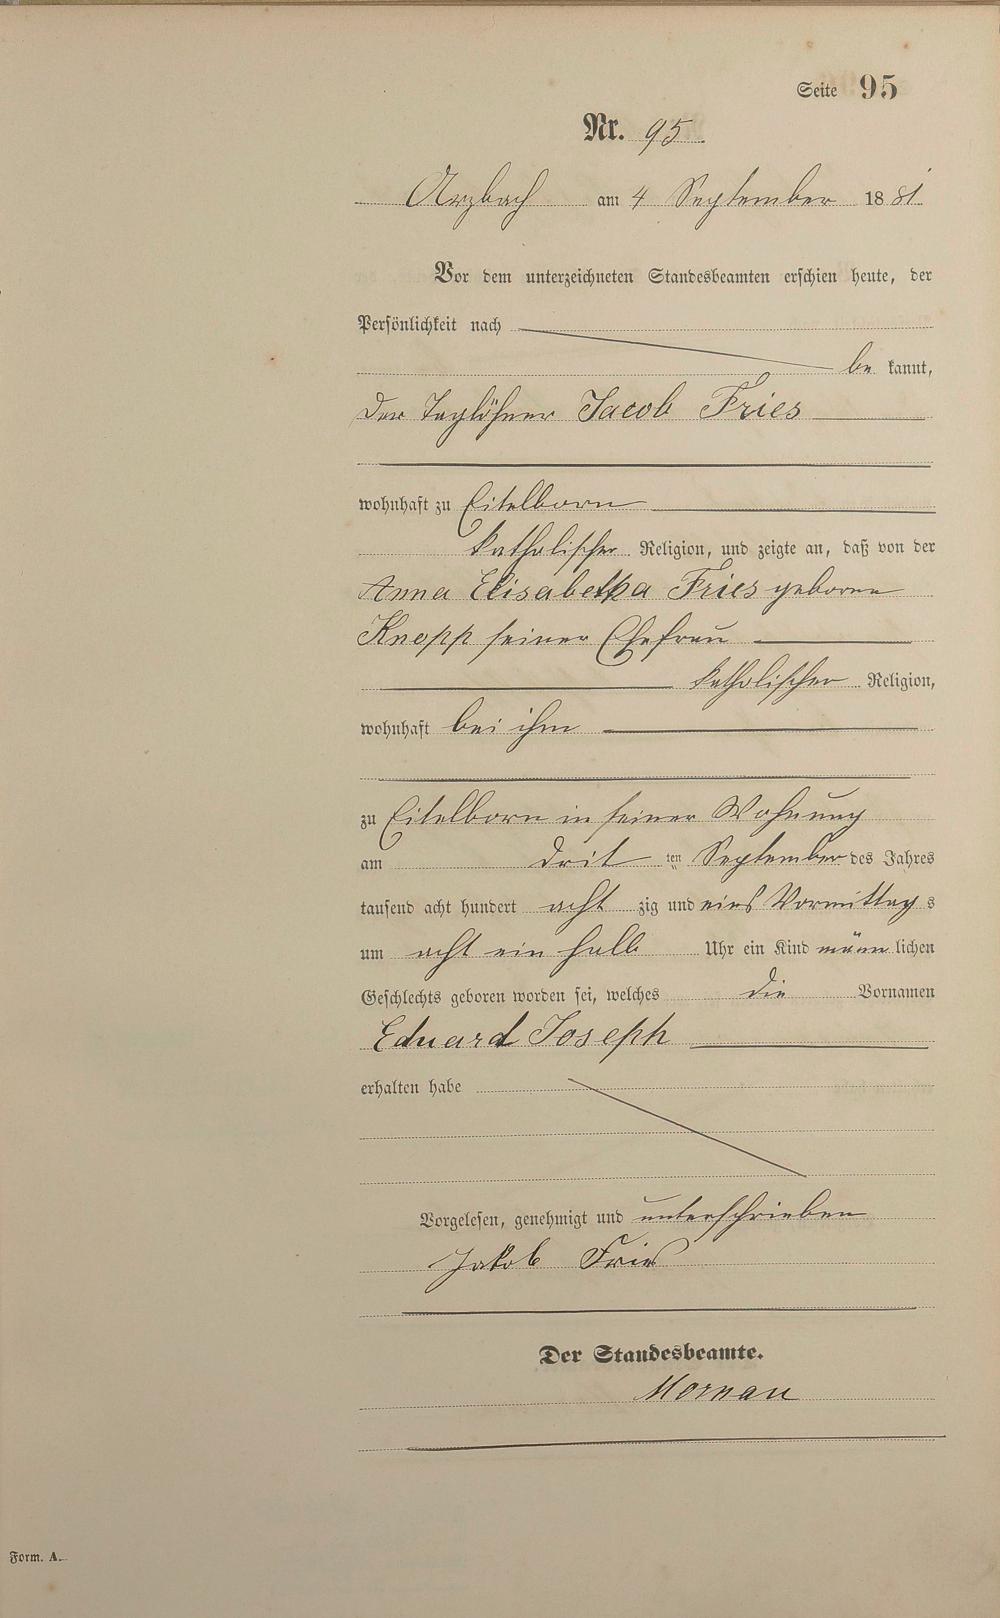 Seite 95
Nr. 95
Arzbach am 4 September 1881
Vor dem unterzeichneten Standesbeamten erschien heute, der
Persönlichkeit nach
be kannt,
der Taglöhner Jacob Fries
wohnhaft zu Eitelborn
katholischer Religion, und zeigte an, daß von der
Anna Elisabetha Fries geborene
Knopp seiner Ehefrau
katholischer Religion,
wohnhaft bei ihm
zu Eitelborn in seiner Wohnung
am drit ten September des Jahres
tausend acht hundert acht zig und eins Vormittag s
um acht ein halb Uhr ein Kind männ lichen
Geschlechts geboren worden sei, welches die Vornamen
Eduard Joseph
erhalten habe
Vorgelesen, genehmigt und unterschrieben
Jakob Fries
Der Standesbeamte.
Mornau
Form. A.